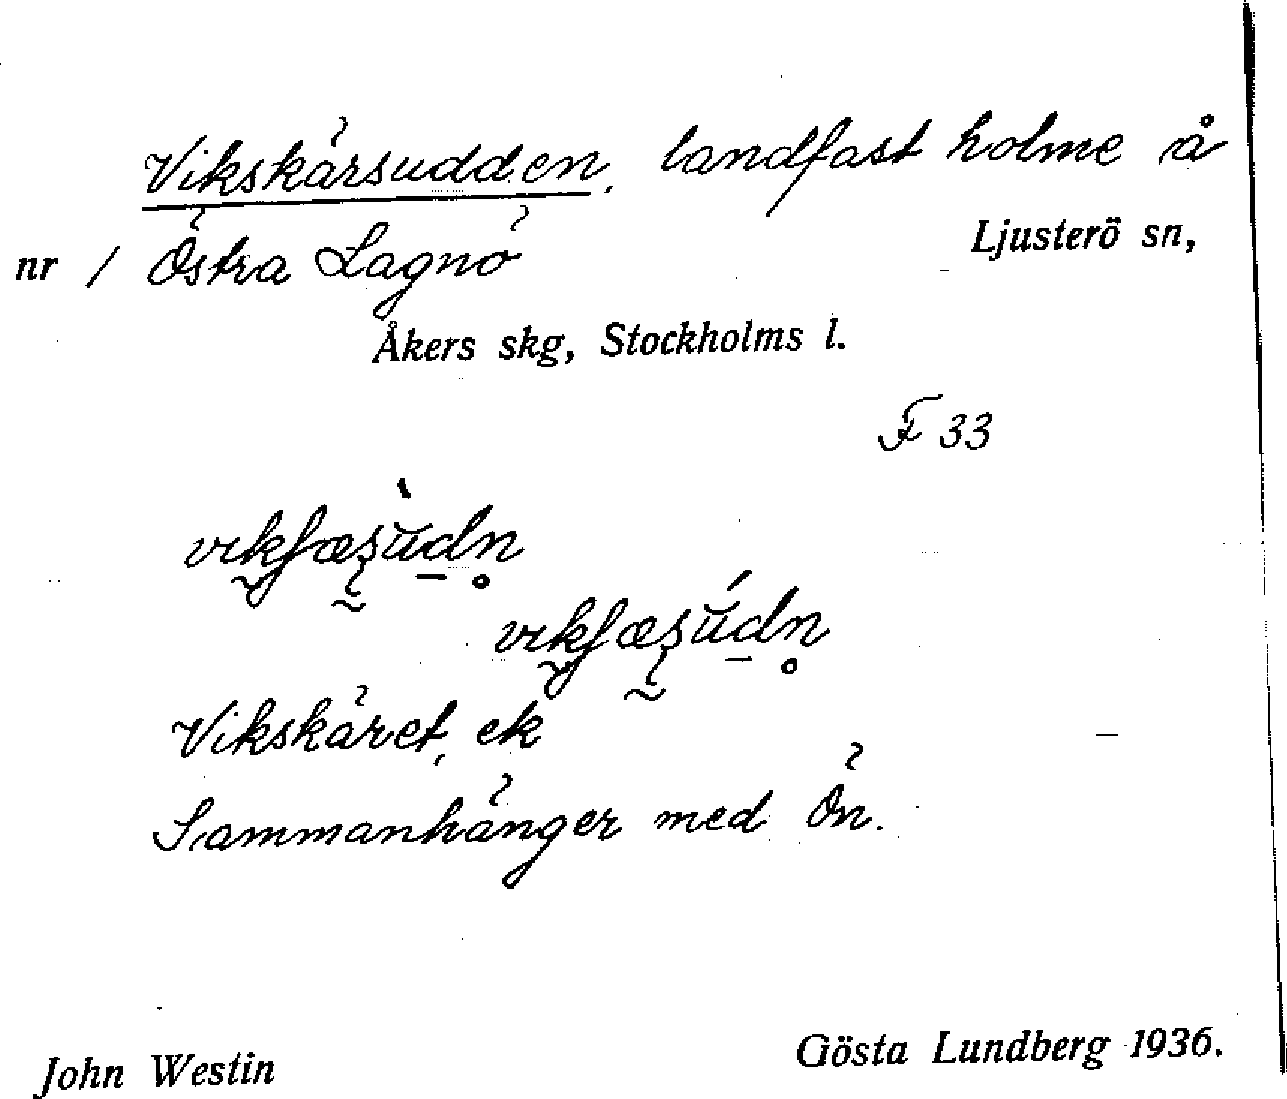 Vikskärsudden, landfast holme å
nr 1 Östra Lagnö Ljusterö sn,
Åkers skg, Stockholms l.
F 33
Vikskäret, ek
Sammanhänger med Ön.
John Westin Gösta Lundberg 1936.